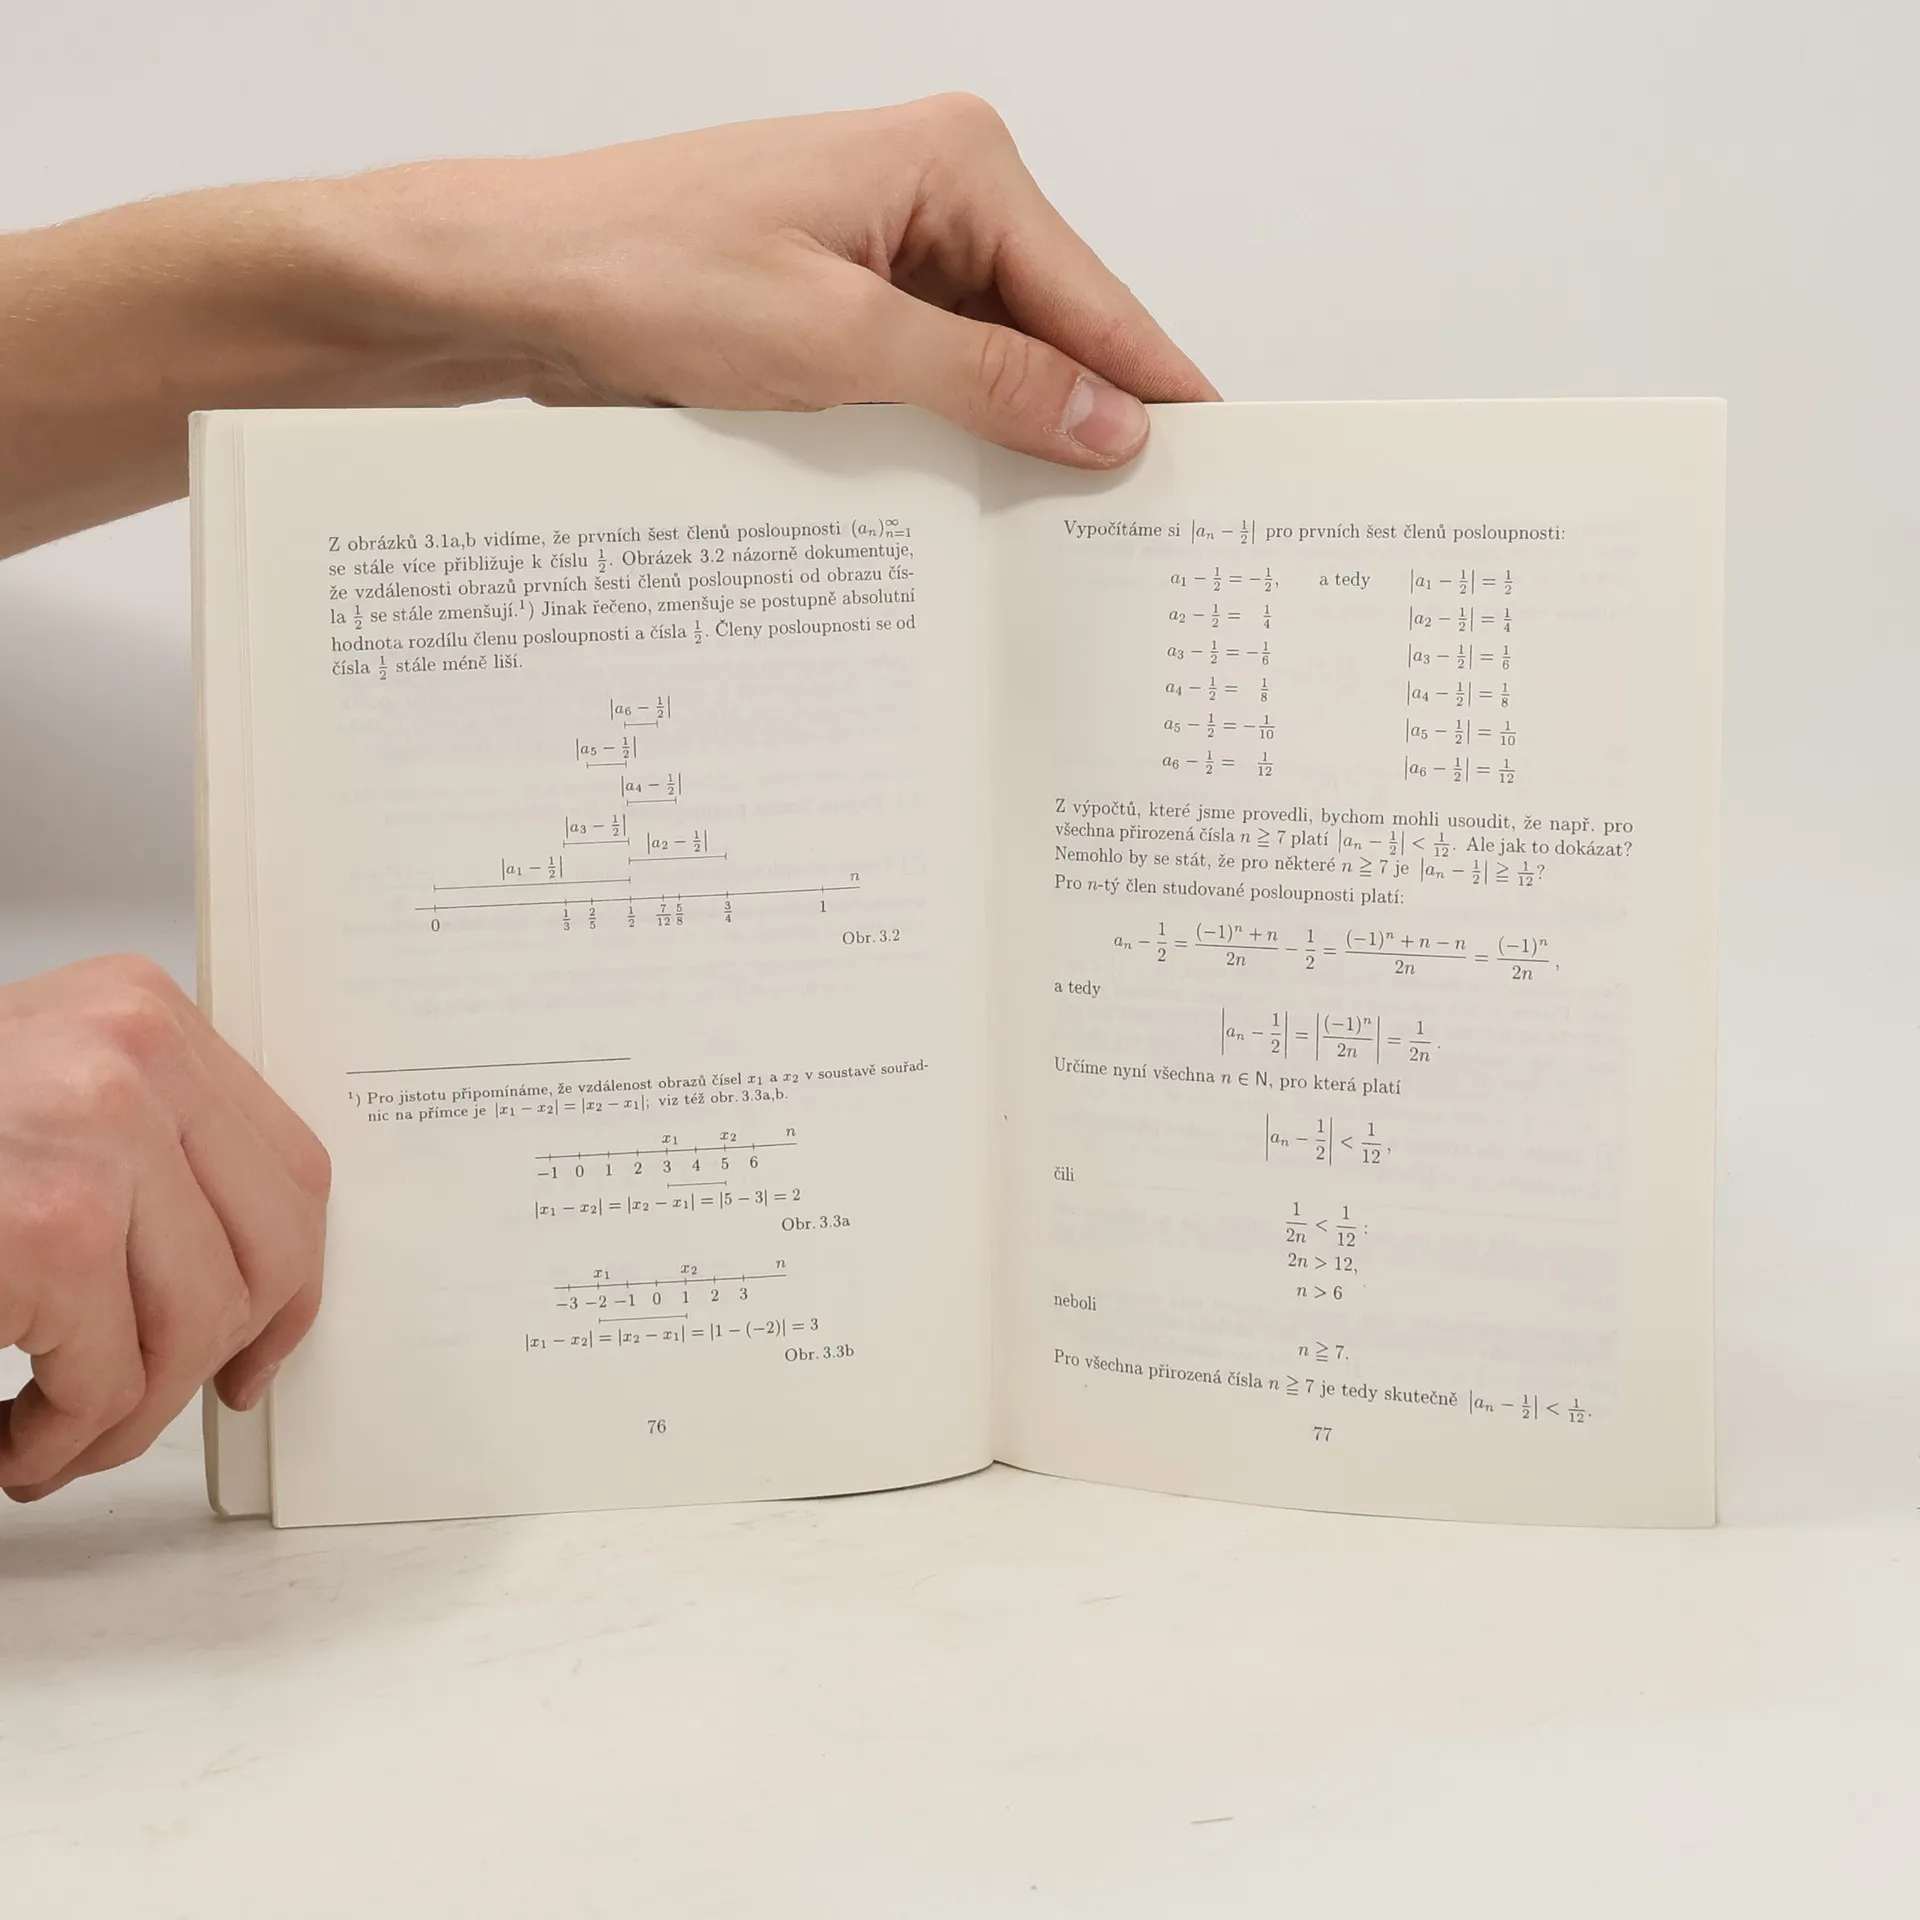 Z obrázků 3.1a,b vidíme, že prvních šest členů posloupnosti (aₙ)ₙ₌₁^∞
se stále více přibližuje k číslu 1/2. Obrázek 3.2 názorně dokumentuje,
že vzdálenosti obrazů prvních šesti členů posloupnosti od obrazu čís-
la 1/2 se stále zmenšují.¹) Jinak řečeno, zmenšuje se postupně absolutní
hodnota rozdílu členu posloupnosti a čísla 1/2. Členy posloupnosti se od
čísla 1/2 stále méně liší.
|a₆ − 1/2|
|a₅ − 1/2|
|a₄ − 1/2|
|a₃ − 1/2|
|a₂ − 1/2|
|a₁ − 1/2|
n
0 1/3 2/5 1/2 7/12 5/8 3/4 1
Obr. 3.2
¹) Pro jistotu připomínáme, že vzdálenost obrazů čísel x₁ a x₂ v soustavě souřad-
nic na přímce je |x₁ − x₂| = |x₂ − x₁|; viz též obr. 3.3a,b.
x₁ x₂ n
−1 0 1 2 3 4 5 6
|x₁ − x₂| = |x₂ − x₁| = |5 − 3| = 2
Obr. 3.3a
x₁ x₂ n
−3 −2 −1 0 1 2 3
|x₁ − x₂| = |x₂ − x₁| = |1 − (−2)| = 3
Obr. 3.3b
76
Vypočítáme si |aₙ − 1/2| pro prvních šest členů posloupnosti:
a₁ − 1/2 = −1/2, a tedy |a₁ − 1/2| = 1/2
a₂ − 1/2 = 1/4 |a₂ − 1/2| = 1/4
a₃ − 1/2 = −1/6 |a₃ − 1/2| = 1/6
a₄ − 1/2 = 1/8 |a₄ − 1/2| = 1/8
a₅ − 1/2 = −1/10 |a₅ − 1/2| = 1/10
a₆ − 1/2 = 1/12 |a₆ − 1/2| = 1/12
Z výpočtů, které jsme provedli, bychom mohli usoudit, že např. pro
všechna přirozená čísla n ≧ 7 platí |aₙ − 1/2| < 1/12. Ale jak to dokázat?
Nemohlo by se stát, že pro některé n ≧ 7 je |aₙ − 1/2| ≧ 1/12?
Pro n-tý člen studované posloupnosti platí:
aₙ − 1/2 = ((−1)ⁿ + n)/2n − 1/2 = ((−1)ⁿ + n − n)/2n = (−1)ⁿ/2n,
a tedy
|aₙ − 1/2| = |(−1)ⁿ/2n| = 1/2n.
Určíme nyní všechna n ∈ N, pro která platí
|aₙ − 1/2| < 1/12,
čili
1/2n < 1/12:
2n > 12,
n > 6
neboli
n ≧ 7.
Pro všechna přirozená čísla n ≧ 7 je tedy skutečně |aₙ − 1/2| < 1/12.
77